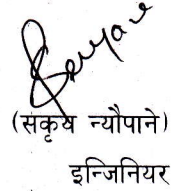 (संकृष न्यौपाने)
इन्जिनियर